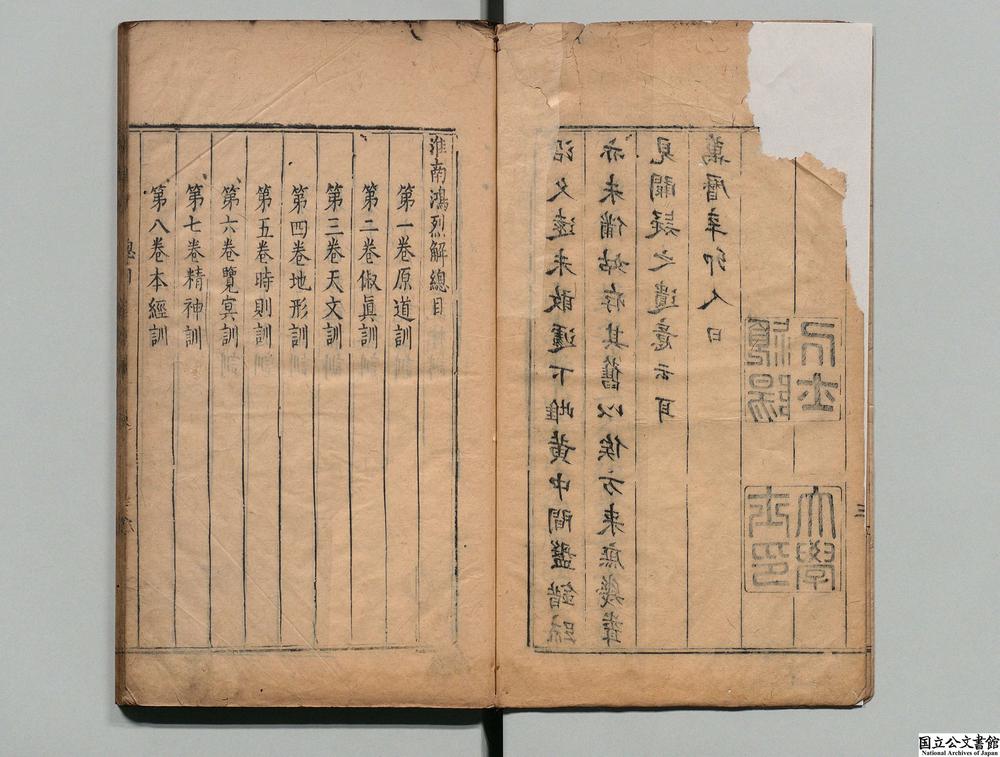 沿久遠未敢遽下雌黄中間盤錯疏
亦未備姑存其舊以俟方來庶幾
見闕疑之遺意云耳
萬曆辛卯人日
三
淮南鴻烈解總目
第一卷原道訓
第二卷俶眞訓
第三卷天文訓
第四卷地形訓
第五卷時則訓
第六卷覽冥訓
第七卷精神訓
第八卷本經訓
国立公文書館
National Archives of Japan